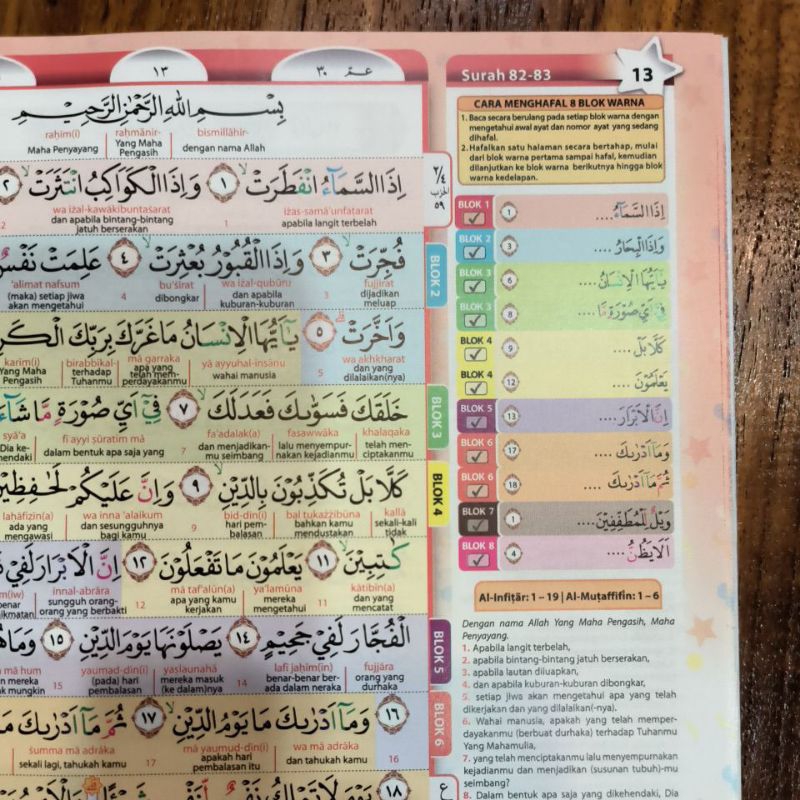 ١٣
عمّ ٣٠
بِسْمِ اللّٰهِ الرَّحْمٰنِ الرَّحِيْمِ
raḥīm(i) raḥmānir- bismillāhir-
Maha Penyayang Yang Maha Pengasih dengan nama Allah
اِذَا السَّمَاۤءُ انْفَطَرَتْ ۙ ١ وَاِذَا الْكَوَاكِبُ انْتَثَرَتْ ۙ ٢
wa iżal-kawākibuntaṡarat 1 iżas-samā'unfaṭarat
dan apabila bintang-bintang jatuh berserakan apabila langit terbelah
فُجِّرَتْ ۙ ٣ وَاِذَا الْقُبُوْرُ بُعْثِرَتْ ۙ ٤ عَلِمَتْ نَفْسٌ
'alimat nafsum 4 bu'ṡirat wa iżal-qubūru 3 fujjirat
(maka) setiap jiwa akan mengetahui dibongkar dan apabila kuburan-kuburan dijadikan meluap
BLOK 2
وَاَخَّرَتْ ۗ ٥ يٰٓاَيُّهَا الْاِنْسَانُ مَا غَرَّكَ بِرَبِّكَ
karīm(i) birabbikal- mā garraka yā ayyuhal-insānu 5 wa akhkharat
Yang Maha Pengasih terhadap Tuhanmu apa yang telah mem-perdayakanmu wahai manusia dan yang dilalaikan(nya)
خَلَقَكَ فَسَوّٰىكَ فَعَدَلَكَ ۙ ٧ فِيْٓ اَيِّ صُوْرَةٍ مَّا شَاۤءَ
syā'a fī ayyi ṣūratim mā 7 fa'adalak(a) fasawwāka khalaqaka
dalam bentuk apa saja yang dan menjadikan-mu seimbang lalu menyempur-nakan kejadianmu telah men-ciptakanmu
BLOK 3
كَلَّا بَلْ تُكَذِّبُوْنَ بِالدِّيْنِ ۙ ٩ وَاِنَّ عَلَيْكُمْ لَحٰفِظِيْنَ
laḥāfiẓīn(a) wa inna 'alaikum 9 bid-dīn(i) bal tukażżibūna kallā
ada yang mengawasi dan sesungguhnya bagi kamu hari pem-balasan bahkan kamu mendustakan sekali-kali tidak
BLOK 4
كٰتِبِيْنَ ۙ ١١ يَعْلَمُوْنَ مَا تَفْعَلُوْنَ ١٢ اِنَّ الْاَبْرَارَ لَفِيْ
innal-abrāra 12 mā taf'alūn(a) ya'lamūna 11 kātibīn(a)
sungguh orang-orang yang berbakti apa yang kamu kerjakan mereka mengetahui dan yang mencatat
الْفُجَّارَ لَفِيْ جَحِيْمٍ ١٤ يَصْلَوْنَهَا يَوْمَ الدِّيْنِ ١٥ وَمَا هُمْ
mā hum 15 yaumad-dīn(i) yaṣlaunahā 14 lafī jaḥīm(in) fujjāra
(pada) hari pembalasan mereka masuk (ke dalam)nya benar-benar ber-ada dalam neraka orang yang durhaka
BLOK 5
١٦ وَمَآ اَدْرٰىكَ مَا يَوْمُ الدِّيْنِ ۙ ١٧ ثُمَّ مَآ اَدْرٰىكَ
ṡumma mā adrāka 17 mā yaumud-dīn(i) wa mā adrāka 16
sekali lagi, tahukah kamu apakah hari pembalasan itu dan tahukah kamu
BLOK 6
١٨
Surah 82-83 13
CARA MENGHAFAL 8 BLOK WARNA
1. Baca secara berulang pada setiap blok warna dengan
mengetahui awal ayat dan nomor ayat yang sedang
dihafal.
2. Hafalkan satu halaman secara bertahap, mulai
dari blok warna pertama sampai hafal, kemudian
dilanjutkan ke blok warna berikutnya hingga blok
warna kedelapan.
BLOK 1 1 اِذَا السَّمَاۤءُ ....
BLOK 2 3 وَاِذَا الْبِحَارُ ....
BLOK 3 6 يٰٓاَيُّهَا الْاِنْسَانُ ....
BLOK 3 8 فِيْٓ اَيِّ صُوْرَةٍ مَّا ....
BLOK 4 9 كَلَّا بَلْ ....
BLOK 4 12 يَعْلَمُوْنَ ....
BLOK 5 13 اِنَّ الْاَبْرَارَ ....
BLOK 6 17 وَمَآ اَدْرٰىكَ ....
BLOK 6 18 ثُمَّ مَآ اَدْرٰىكَ ....
BLOK 7 1 وَيْلٌ لِّلْمُطَفِّفِيْنَ ....
BLOK 8 4 اَلَا يَظُنُّ ....
Al-Infiṭār: 1 – 19 | Al-Muṭaffifīn: 1 – 6
Dengan nama Allah Yang Maha Pengasih, Maha
Penyayang.
1. Apabila langit terbelah,
2. apabila bintang-bintang jatuh berserakan,
3. apabila lautan diluapkan,
4. dan apabila kuburan-kuburan dibongkar,
5. setiap jiwa akan mengetahui apa yang telah
dikerjakan dan yang dilalaikan(-nya).
6. Wahai manusia, apakah yang telah memper-
dayakanmu (berbuat durhaka) terhadap Tuhanmu
Yang Mahamulia,
7. yang telah menciptakanmu lalu menyempurnakan
kejadianmu dan menjadikan (susunan tubuh)-mu
seimbang?
8. Dalam bentuk apa saja yang dikehendaki, Dia